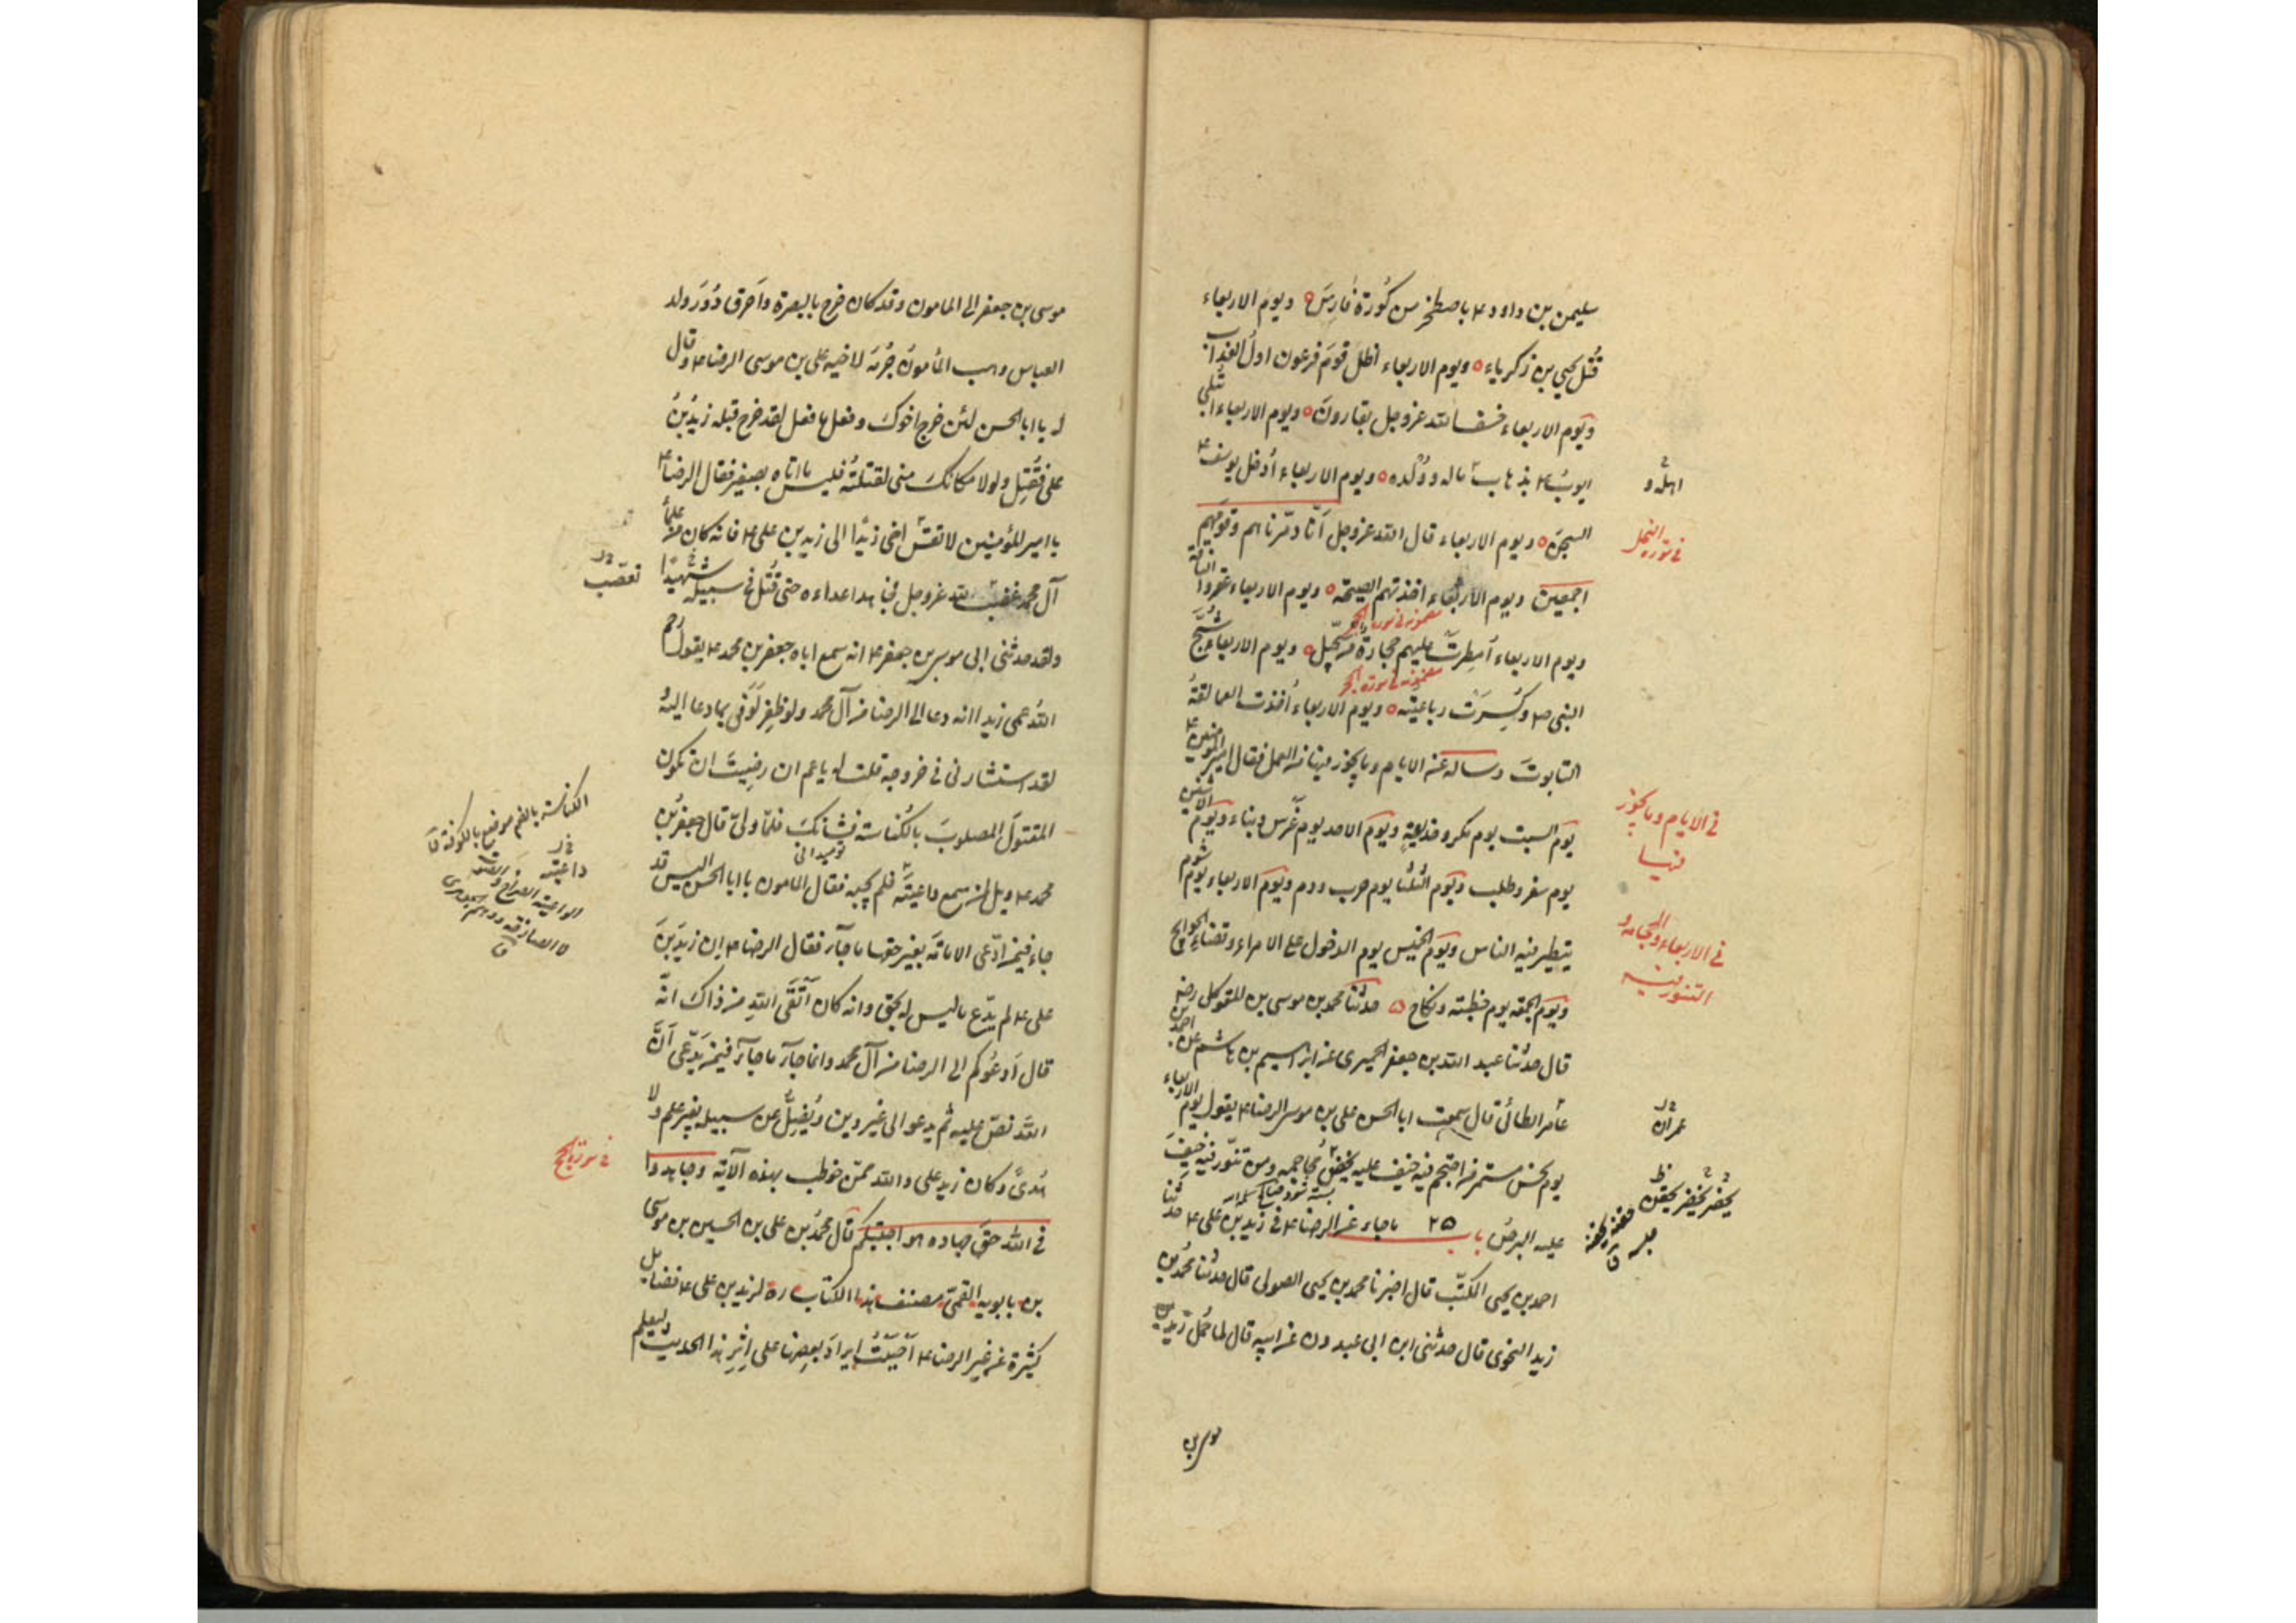 سليمن بن داود ع باصطخر من كُورَة فارِسَ ويوم الاربعاء
قُتل يحيى بن زكرياء ويوم الاربعاء اظل قومَ فرعون اول العذاب
ويَوم الاربعاء خسف الله عز وجل بقارون ويوم الاربعاء ابتلى
ايوب ع بذهاب ماله وولده ويوم الاربعاء أدخل يوسف ع
السجن ويوم الاربعاء قال الله عز وجل أنّا دمّرناهم وقومهم
اجمعين ويوم الاربعاء اخذتهم الصيحة ويوم الاربعاء عقروا الناقة
ويوم الاربعاء أمطِرتْ عليهم حجارة من سجّيل ويوم الاربعاء شُجّ
النبي ص وكُسِرَت رباعيته ويوم الاربعاء أخذت العمالقةُ
التابوتَ وساله عن الايام وما يجوز فيها من العمل فقال امير المؤمنين ع
يَوم السبت يوم مكر وخديعةٍ ويَوم الاحد يوم غَرس وبناء ويَوم الاثنين
يوم سفر وطلب ويَوم الثلثا يوم حرب ودم ويَوم الاربعاء يوم شوم
يتطير فيه الناس ويَوم الخميس يوم الدخول على الامراء وقضاء الحوائج
ويَوم الجمعة يوم خطبته ونكاح حدثنا محمد بن موسى بن المتوكل رضه
قال حدثنا عبد الله بن جعفر الحميرى عن ابراهيم بن هاشم عن احمد بن
عامر الطائى قال سمعت ابا الحسن على بن موسى الرضا ع يقول يوم الاربعاء
يوم نحس مستمر من احتجم فيه خيف عليه ان تخضر محاجمه ومن تنور فيه خيفَ
عليه البرص باب ٢٥ ما جاء عن الرضا ع فى زيد بن على ع حدثنا
احمد بن يحيى المكتّب قال اخبرنا محمد بن يحيى الصولى قال حدثنا محمد بن
زيد النحوى قال حدثنى ابن ابى عبدون عن ابيه قال لما حُمل زيد بن
موسى بن
اهله و
فى الايام وما يجوز
فيها
فى الاربعاء والحجامة و
التنور فيه
عمران
موسى بن جعفر الى المامون وقد كان خرج بالبصرة واَحرق دُوَرَ ولد
العباس وهب المأمونُ جُرمَه لاخيه على بن موسى الرضا ع وقال
له يا ابا الحسن لئن خرج اخوكَ وفعل ما فعل لقد خرج قبله زيد بنُ
على فقُتِل ولولا مكانكَ منى لقتلتُه فليس ما اتاه بصغير فقال الرضا ع
يا امير المؤمنين لا تقسْ اخى زيدًا الى زيد بن على ع فانه كان من علماء
آل محمد غضب لله عز وجل فجاهد اعداءه حتى قُتل فى سبيله شهيدًا
ولقد حدثنى ابى موسى بن جعفر ع انه سمع اباه جعفر بن محمد ع يقول رحم
اللهُ عمى زيدا انه دعا الى الرضا من آل محمد ولو ظفِر لَوَفى بما دعا اليه
لقد استشارنى فى خروجه فقلت له يا عم ان رضِيتَ ان تكون
المقتولَ المصلوبَ بالكُناسة فشانكَ فلمّا ولى قال جعفر بن
محمد ع ويل لمن سمع داعيتَه فلم يجبه فقال المامون يا ابا الحسن اليس قد
جاء فيمن ادّعى الامامة بغير حقها ما جآء فقال الرضا ع ان زيدَ بنَ
على ع لم يدّع ما ليس له بحق وانه كان اَتْقَى اللهِ من ذاكَ انّه
قال اَدعُوكم الى الرضا من آل محمد وانما جآء ما جآء فيمن يَدّعى اَنَّ
اللهَ نصّ عليه ثم يدعو الى غير دين ويُضِلُّ عن سبيله بغير علم ولا
هدىً وكان زيد على والله ممّن خوطب بهذه الآية وجاهدوا
فى الله حقَ جهاده هو اجتبيكم قال محمدُ بن على بن الحسين بن موسى
بن بابويه القمىّ مصنف هذا الكتاب ره لزيد بن على ع فضايل
كثيرة عن غير الرضا ع احببْتُ ايرادَ بعضها على اِثرِ هذا الحديث ليعلم
الكناسة بالضم موضع بالكوفة ق